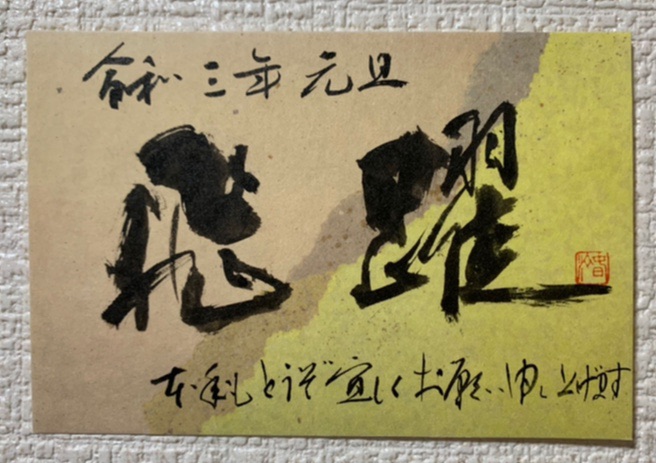 令和三年 元旦
飛躍
本年もどうぞ宜しくお願い申し上げます